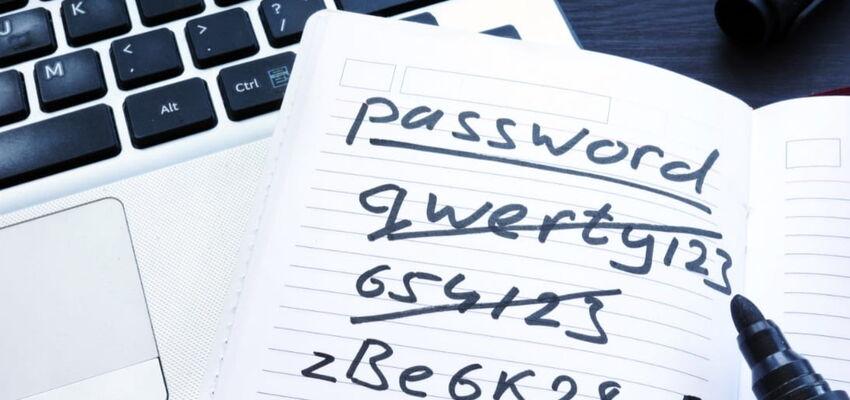 U K
< , > . ? /
M
Alt Ctrl
password
qwerty123
654123
zBe6K28